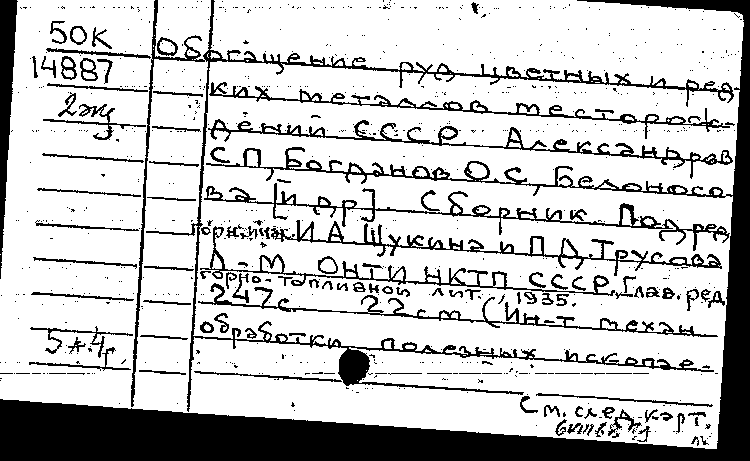 50К
14887
2 экз.
Обогащение руд цветных и ред-
ких металлов месторож-
дений СССР. Александров
С.П, Богданов О.С, Белоносо-
ва [и др]. Сборник. Под ред
горн. инж. И А Щукина и П.Д. Трусова
Л.-М. ОНТИ НКТП СССР, Глав. ред
горно-топливной лит., 1935.
247 с. 22 см (Ин-т механ
обработки полезных ископае-
См. след. карт.